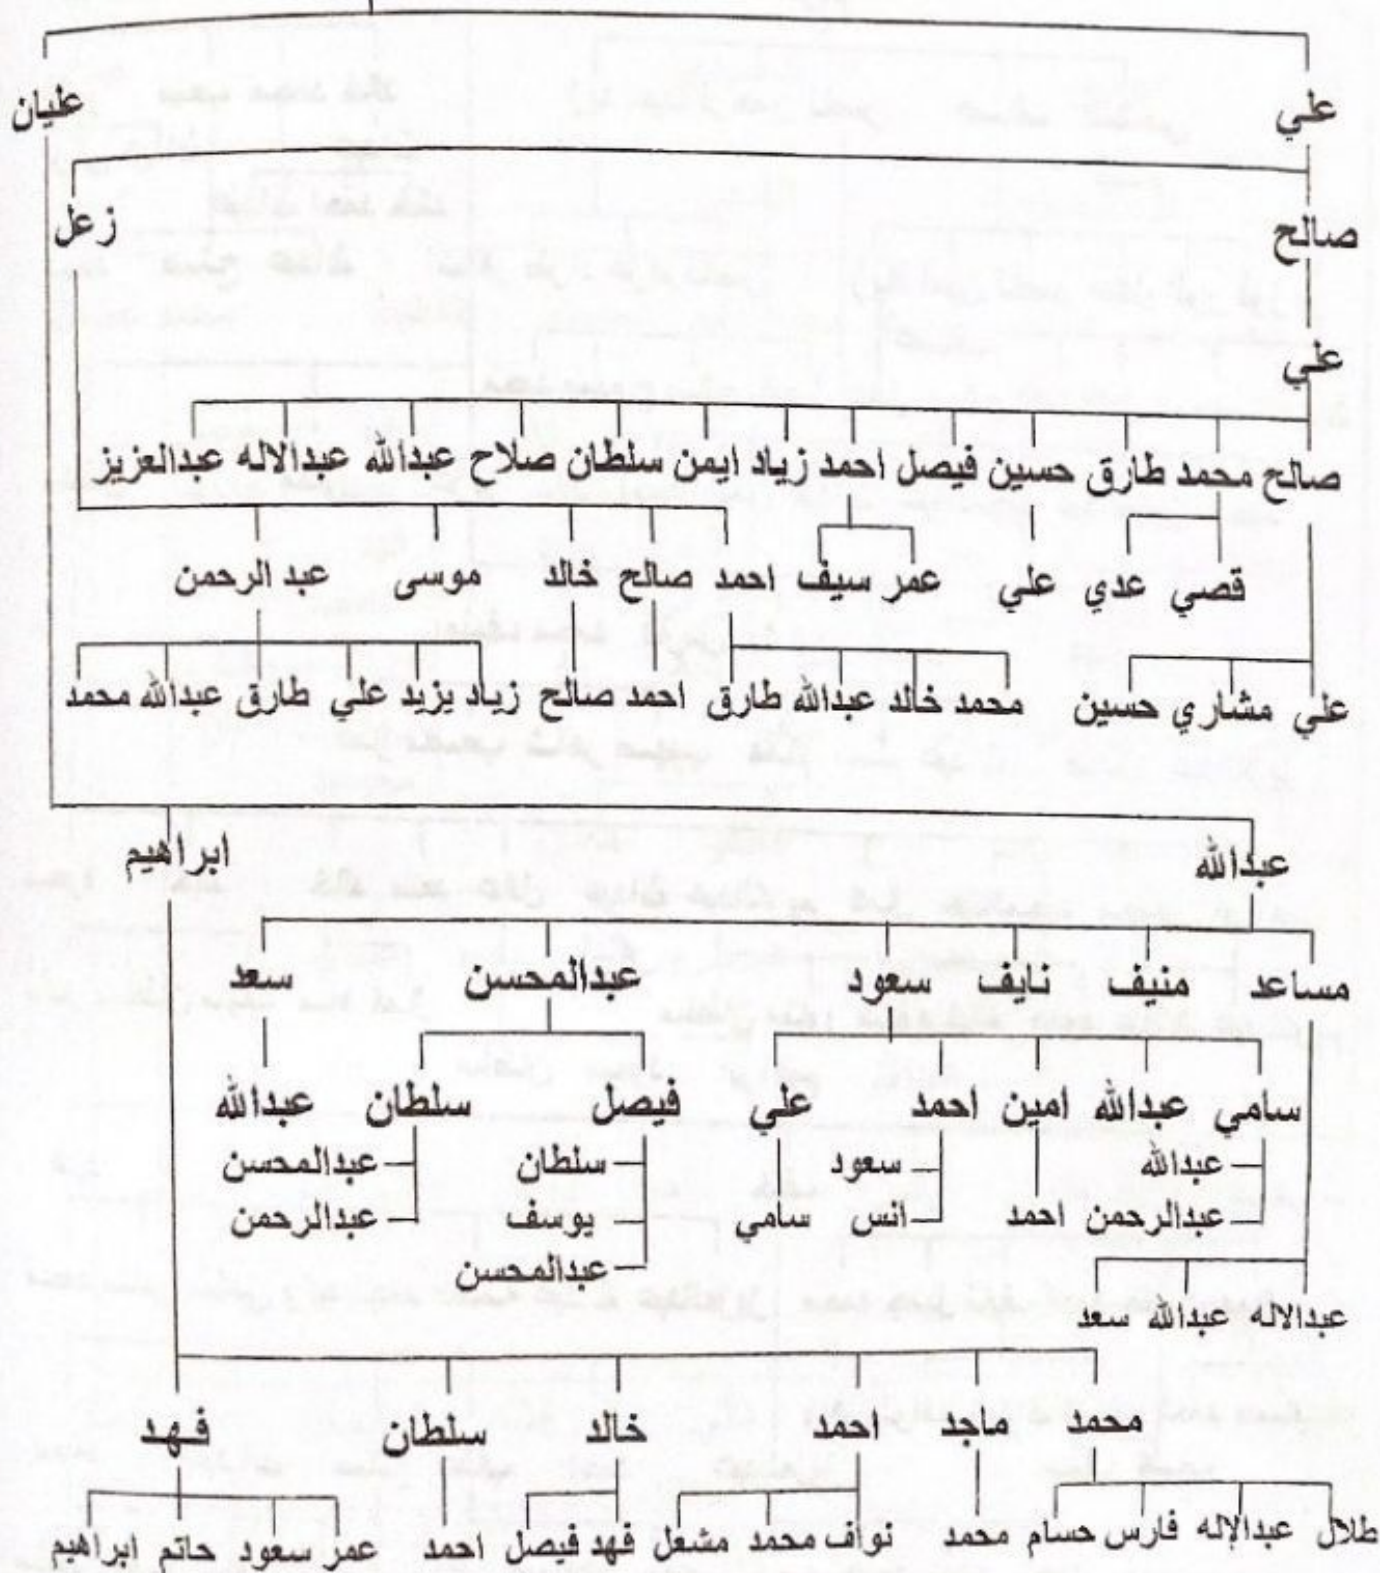 علي عليان
صالح زعل
علي
صالح محمد طارق حسين فيصل احمد زياد ايمن سلطان صلاح عبدالله عبدالاله عبدالعزيز
قصي عدي علي عمر سيف احمد صالح خالد موسى عبد الرحمن
علي مشاري حسين محمد خالد عبدالله طارق احمد صالح زياد يزيد علي طارق عبدالله محمد
عبدالله ابراهيم
مساعد منيف نايف سعود عبدالمحسن سعد
سامي عبدالله امين احمد علي فيصل سلطان عبدالله
عبدالله سعود سلطان عبدالمحسن
عبدالرحمن احمد انس سامي يوسف عبدالرحمن
عبدالمحسن
عبدالاله عبدالله سعد
محمد ماجد احمد خالد سلطان فهد
طلال عبدالإله فارس حسام محمد نواف محمد مشعل فهد فيصل احمد عمر سعود حاتم ابراهيم